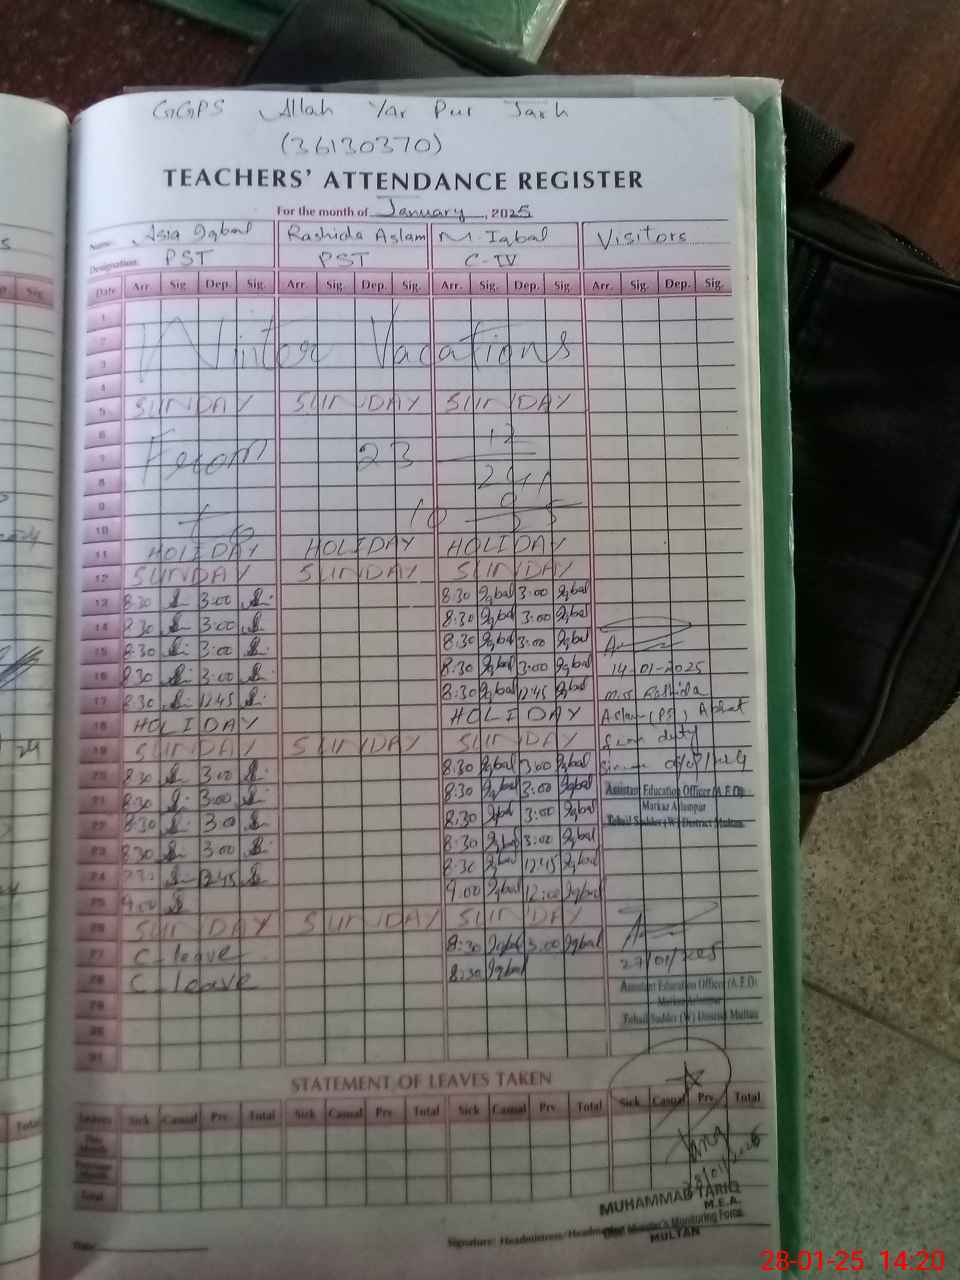 GGPS Allah Yar Pur Jarh
(36130370)
TEACHERS' ATTENDANCE REGISTER
For the month of January, 2025
Name: Asia Iqbal Rashida Aslam M. Iqbal Visitors
Designation: PST PST C-IV
Date Arr. Sig. Dep. Sig. Arr. Sig. Dep. Sig. Arr. Sig. Dep. Sig. Arr. Sig. Dep. Sig.
1
2 Winter Vacations
3
4
5 SUNDAY SUNDAY SUNDAY
6 12
7 From 23
8 24
9
10 to 10
11 HOLIDAY HOLIDAY HOLIDAY
12 SUNDAY SUNDAY SUNDAY
13 8:30 3:00 8:30 Iqbal 3:00 Iqbal
14 8:30 3:00 8:30 Iqbal 3:00 Iqbal
15 8:30 3:00 8:30 Iqbal 3:00 Iqbal
16 8:30 3:00 8:30 Iqbal 3:00 Iqbal 14-01-2025
17 8:30 12:45 8:30 Iqbal 12:45 Iqbal Rashida
18 HOLIDAY HOLIDAY Aslam (PST)
19 SUNDAY SUNDAY SUNDAY from duty
20 8:30 3:00 8:30 Iqbal 3:00 Iqbal
21 8:30 3:00 8:30 Iqbal 3:00 Iqbal Assistant Education Officer (A.E.O)
Markaz Aslampur
22 8:30 3:00 8:30 Iqbal 3:00 Iqbal Tehsil Sadder (W) District Multan
23 8:30 3:00 8:30 Iqbal 3:00 Iqbal
24 8:30 12:45 8:30 Iqbal 12:45 Iqbal
25 9:00 9:00 Iqbal 12:00 Iqbal
26 SUNDAY SUNDAY SUNDAY
27 C-leave 8:30 Iqbal 3:00 Iqbal 27/01/2025
28 C-leave 8:30 Iqbal Assistant Education Officer (A.E.O)
29 Markaz Aslampur
Tehsil Sadder (W) District Multan
30
31
STATEMENT OF LEAVES TAKEN
Leaves Sick Casual Prv. Total Sick Casual Prv. Total Sick Casual Prv. Total Sick Casual Prv. Total
This Month
Previous Month
Total
28/01/2025
MUHAMMAD TARIQ
M.E.A.
Chief Minister's Monitoring Force
MULTAN
Date
Signature: Headmistress/Headmaster
28-01-25 14:20